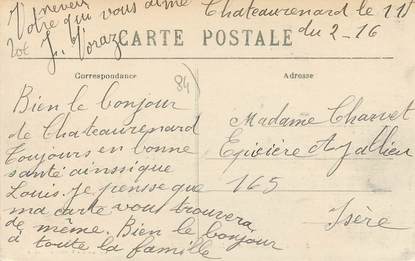 Votre qui vous aime
Chateaurenard le 11
du 2-16
CARTE POSTALE
Correspondance
Adresse
84
Bien le bonjour
de Chateaurenard
Toujours en bonne
santé ainssi que
Louis. Je pensse que
ma carte vous trouvera
de même. Bien le bonjour
à toute la famille
Madame Charvet
Epicière à Jallieu
165
Isère